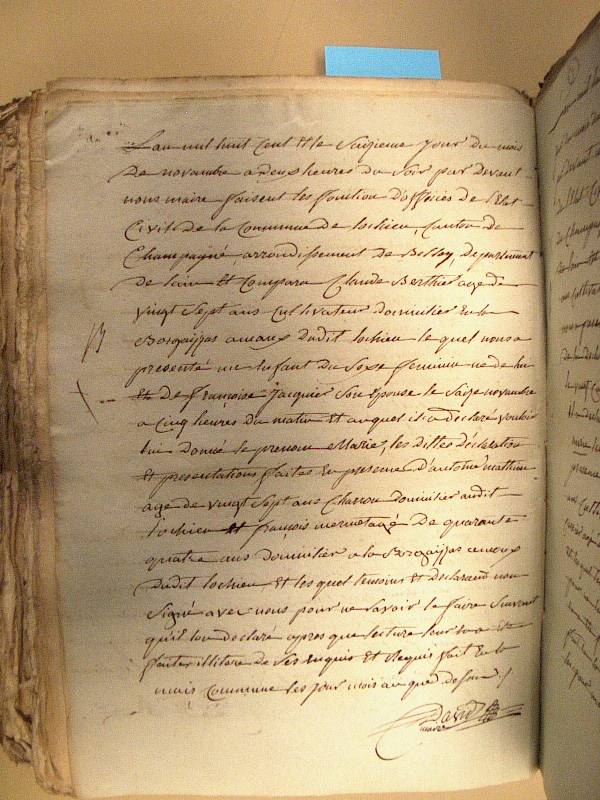 L'an mil huit Cent et le Seizieme jour du mois
de novembre a deux heures du Soir par devant
nous maire faisent les fonction d'officies de l'Etat
Civil de la Commune de lochieu, Canton de
Champagne arrondissement de Belley, departement
de l'ain Et Comparu Claude Berthier age de
vingt Sept ans Cultivateur domicilier En la
dudit lochieu le quel nous a
presenté un Enfant du Sexe feminin né de lui
Et De françoise Jacquier Son Epouse le Seize novembre
a Cinq heures du matin Et auquel il a déclaré vouloir
lui donné le prenom Marie, les dittes déclaration
Et presentations faites En presence d'antoine
age de vingt Sept ans Charron domicilier audit
lochieu Et françois mermet agé De quarante
quatre ans domicilier a la
Dudit lochieu, Et les quel temoins Et déclarant non
Signé avec nous pour ne Savoir le faire Suivant
qu'il l'on declaré apres que lecture leur En a Eté
faite de Ses Enquis Et Requis fait En la
mais Commune les jour mois an que dessus
David
maire